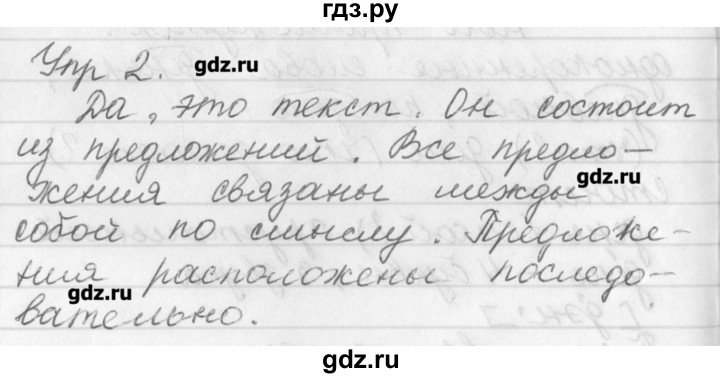 гдз.ру
Упр 2.
gdz.ru
Да, это текст. Он состоит
из предложений. Все предло-
gdz.ru
жения связаны между
собой по смыслу. Предложе-
ния расположены последо-
gdz.ru
вательно.
gdz.ru